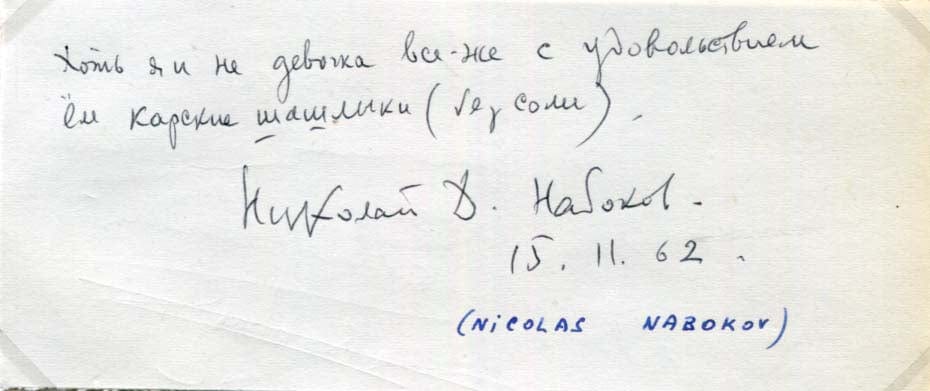 Хоть я и не девочка все-же с удовольствием
ём карские шашлыки (без соли).
Николай Д. Набоков.
15. 11. 62.
(NICOLAS NABOKOV)